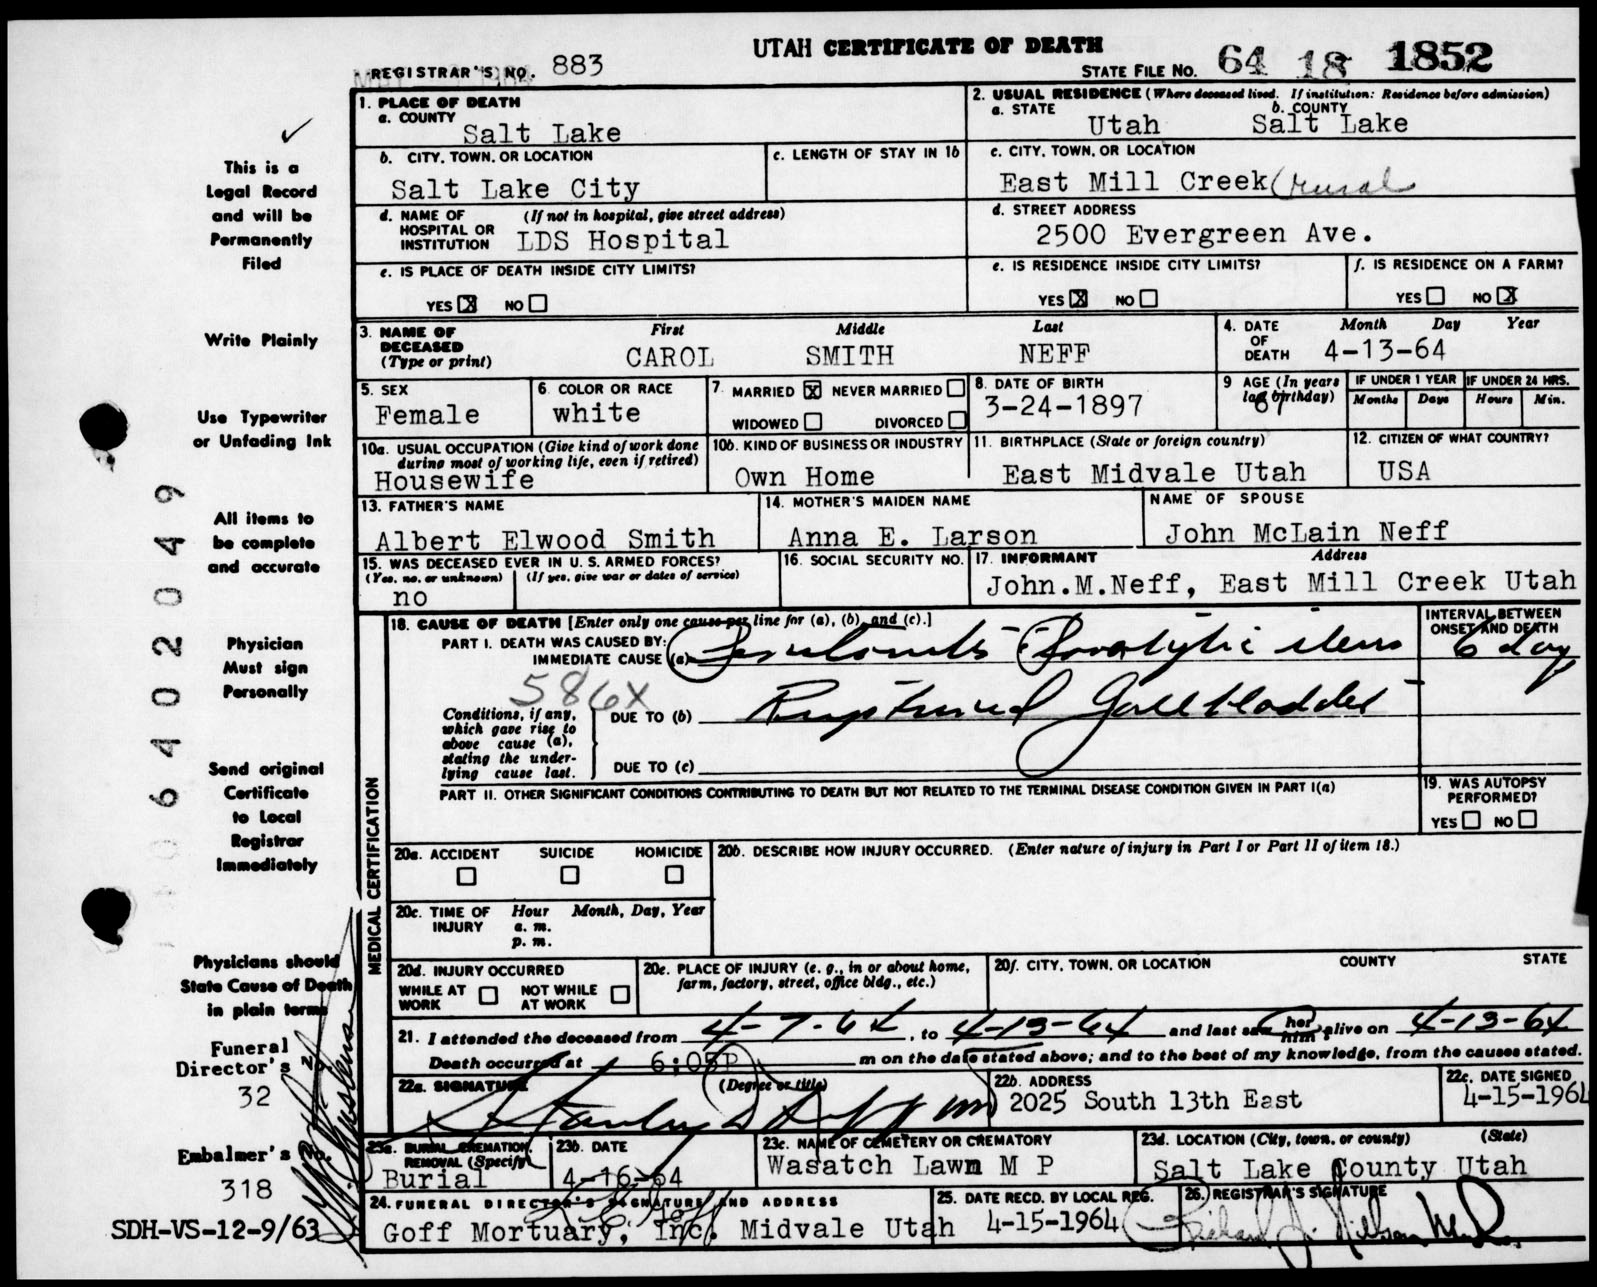 UTAH CERTIFICATE OF DEATH
REGISTRAR'S NO. 883
STATE FILE NO. 64 18 1852
1. PLACE OF DEATH
a. COUNTY
Salt Lake
2. USUAL RESIDENCE (Where deceased lived. If institution: Residence before admission)
a. STATE b. COUNTY
Utah Salt Lake
b. CITY, TOWN, OR LOCATION
Salt Lake City
c. LENGTH OF STAY IN 1b
c. CITY, TOWN, OR LOCATION
East Mill Creek (rural
d. NAME OF HOSPITAL OR INSTITUTION (If not in hospital, give street address)
LDS Hospital
d. STREET ADDRESS
2500 Evergreen Ave.
e. IS PLACE OF DEATH INSIDE CITY LIMITS?
YES X NO
e. IS RESIDENCE INSIDE CITY LIMITS?
YES X NO
f. IS RESIDENCE ON A FARM?
YES NO X
3. NAME OF DECEASED (Type or print)
First Middle Last
CAROL SMITH NEFF
4. DATE OF DEATH
Month Day Year
4-13-64
5. SEX
Female
6. COLOR OR RACE
white
7. MARRIED X NEVER MARRIED
WIDOWED DIVORCED
8. DATE OF BIRTH
3-24-1897
9 AGE (In years last birthday)
67
IF UNDER 1 YEAR
Months Days
IF UNDER 24 HRS.
Hours Min.
10a. USUAL OCCUPATION (Give kind of work done during most of working life, even if retired)
Housewife
10b. KIND OF BUSINESS OR INDUSTRY
Own Home
11. BIRTHPLACE (State or foreign country)
East Midvale Utah
12. CITIZEN OF WHAT COUNTRY?
USA
13. FATHER'S NAME
Albert Elwood Smith
14. MOTHER'S MAIDEN NAME
Anna E. Larson
NAME OF SPOUSE
John McLain Neff
15. WAS DECEASED EVER IN U. S. ARMED FORCES?
(Yes, no, or unknown) (If yes, give war or dates of service)
no
16. SOCIAL SECURITY NO.
17. INFORMANT Address
John.M.Neff, East Mill Creek Utah
MEDICAL CERTIFICATION
18. CAUSE OF DEATH [Enter only one cause per line for (a), (b), and (c).]
PART I. DEATH WAS CAUSED BY:
IMMEDIATE CAUSE (a) Peritonitis Paralytic ileus
INTERVAL BETWEEN ONSET AND DEATH
6 day
586X
Conditions, if any, which gave rise to above cause (a), stating the underlying cause last.
DUE TO (b) Ruptured Gall bladder
DUE TO (c)
PART II. OTHER SIGNIFICANT CONDITIONS CONTRIBUTING TO DEATH BUT NOT RELATED TO THE TERMINAL DISEASE CONDITION GIVEN IN PART I(a)
19. WAS AUTOPSY PERFORMED?
YES NO
20a. ACCIDENT SUICIDE HOMICIDE
20b. DESCRIBE HOW INJURY OCCURRED. (Enter nature of injury in Part I or Part II of item 18.)
20c. TIME OF INJURY
Hour Month, Day, Year
a. m.
p. m.
20d. INJURY OCCURRED
WHILE AT WORK NOT WHILE AT WORK
20e. PLACE OF INJURY (e. g., in or about home, farm, factory, street, office bldg., etc.)
20f. CITY, TOWN, OR LOCATION COUNTY STATE
21. I attended the deceased from 4-7-64, to 4-13-64 and last saw her him alive on 4-13-64
Death occurred at 6:05P m on the date stated above; and to the best of my knowledge, from the causes stated.
22a. SIGNATURE (Degree or title)
22b. ADDRESS
2025 South 13th East
22c. DATE SIGNED
4-15-1964
23a. BURIAL, CREMATION, REMOVAL (Specify)
Burial
23b. DATE
4-16-64
23c. NAME OF CEMETERY OR CREMATORY
Wasatch Lawn M P
23d. LOCATION (City, town, or county) (State)
Salt Lake County Utah
24. FUNERAL DIRECTOR'S SIGNATURE AND ADDRESS
Goff Mortuary, Inc. Midvale Utah
25. DATE RECD. BY LOCAL REG.
4-15-1964
26. REGISTRAR'S SIGNATURE
This is a
Legal Record
and will be
Permanently
Filed
Write Plainly
Use Typewriter
or Unfading Ink
All items to
be complete
and accurate
Physician
Must sign
Personally
Send original
Certificate
to Local
Registrar
Immediately
Physicians should
State Cause of Death
in plain terms
Funeral
Director's
32
Embalmer's No.
318
SDH-VS-12-9/63